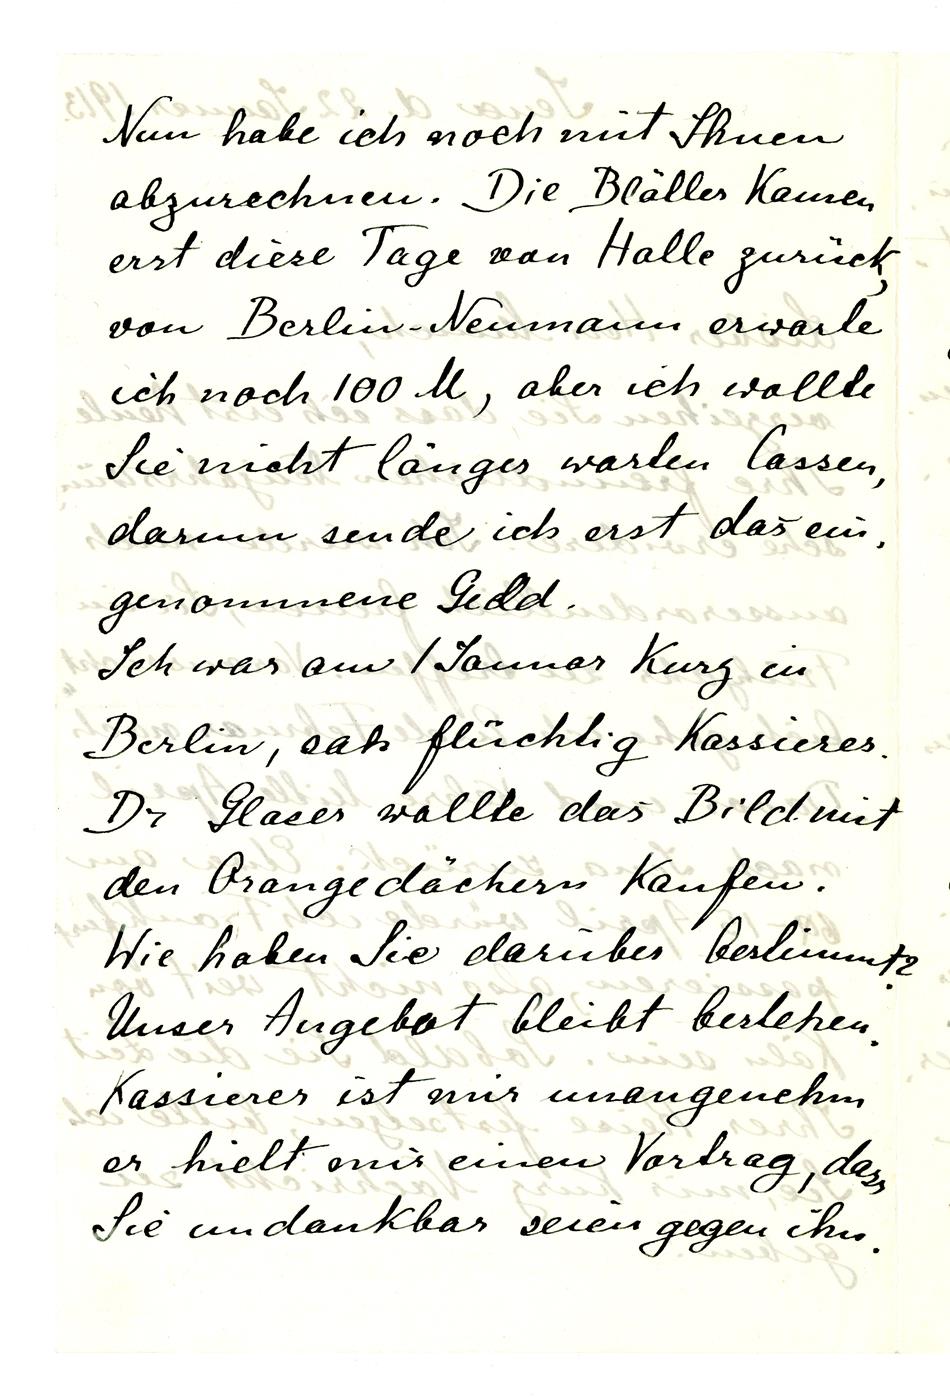 Nun habe ich noch mit Ihnen
abzurechnen. Die Blätter kamen
erst diese Tage von Halle zurück,
von Berlin-Neumann erwarte
ich noch 100 M, aber ich wollte
Sie nicht länger warten lassen,
darum sende ich erst das ein,
genommene Geld.
Ich war am 1 Januar kurz in
Berlin, sah flüchtig Kassierer.
Dr Glaser wollte das Bild mit
den Orangedächern kaufen.
Wie haben Sie darüber bestimmt?
Unser Angebot bleibt bestehen.
Kassierer ist mir unangenehm
er hielt mir einen Vortrag, dass
Sie undankbar seien gegen ihn.